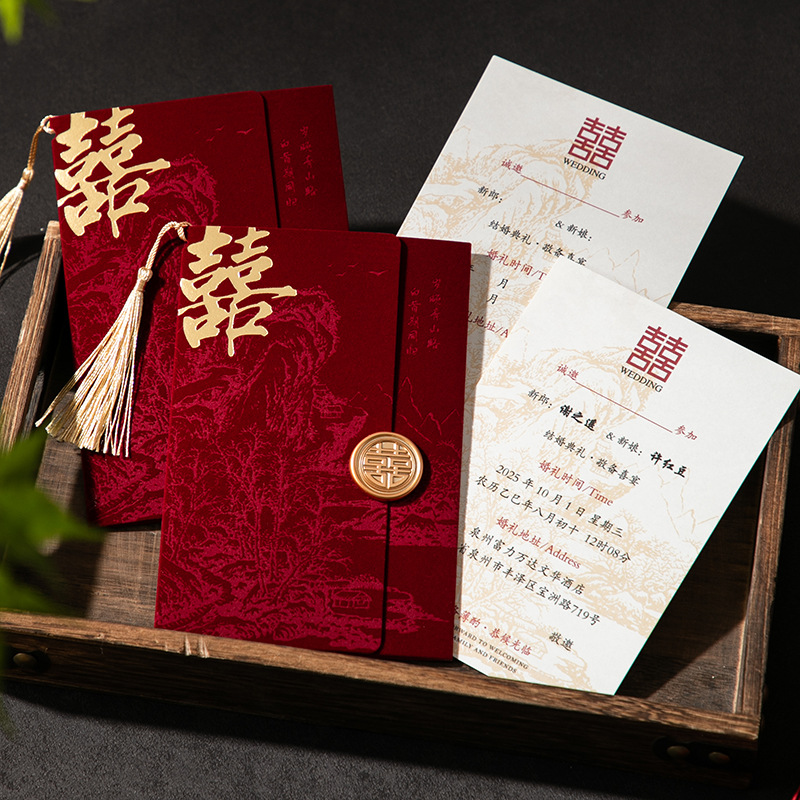 囍
囍
囍
囍
WEDDING
诚邀 参加
新郎：
& 新娘：
结婚典礼·敬备喜宴
婚礼时间/T
月
月
礼地址/A
囍
WEDDING
诚邀 参加
新郎：谢之遥 & 新娘：许红豆
结婚典礼·敬备喜宴
婚礼时间/Time
2025 年 10 月 1 日 星期三
农历乙巳年八月初十 12时08分
婚礼地址/Address
泉州富力万达文华酒店
省泉州市丰泽区宝洲路719号
敬邀
薄酌·恭候光临
RWARD TO WELCOMING
AMILY AND FRIENDS